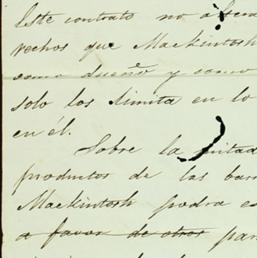 Este contrato no altera
rechos que Mackintosh
como dueño y como
solo los limita en lo
en él.
Sobre la mitad
productos de las bar
Mackintosh podra es
a favor de otros par